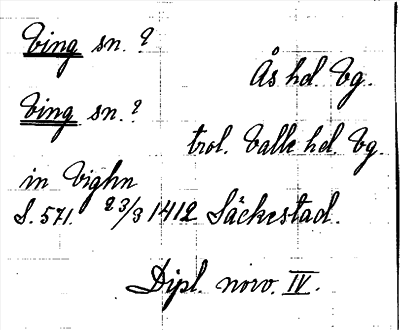 Ving sn. ?
Ås hd. Vg.
Ving sn. ?
trol. Valle hd Vg.
in Vighn
S. 571. 23/3 1412 Säckestad.
Dipl. norv. IV.